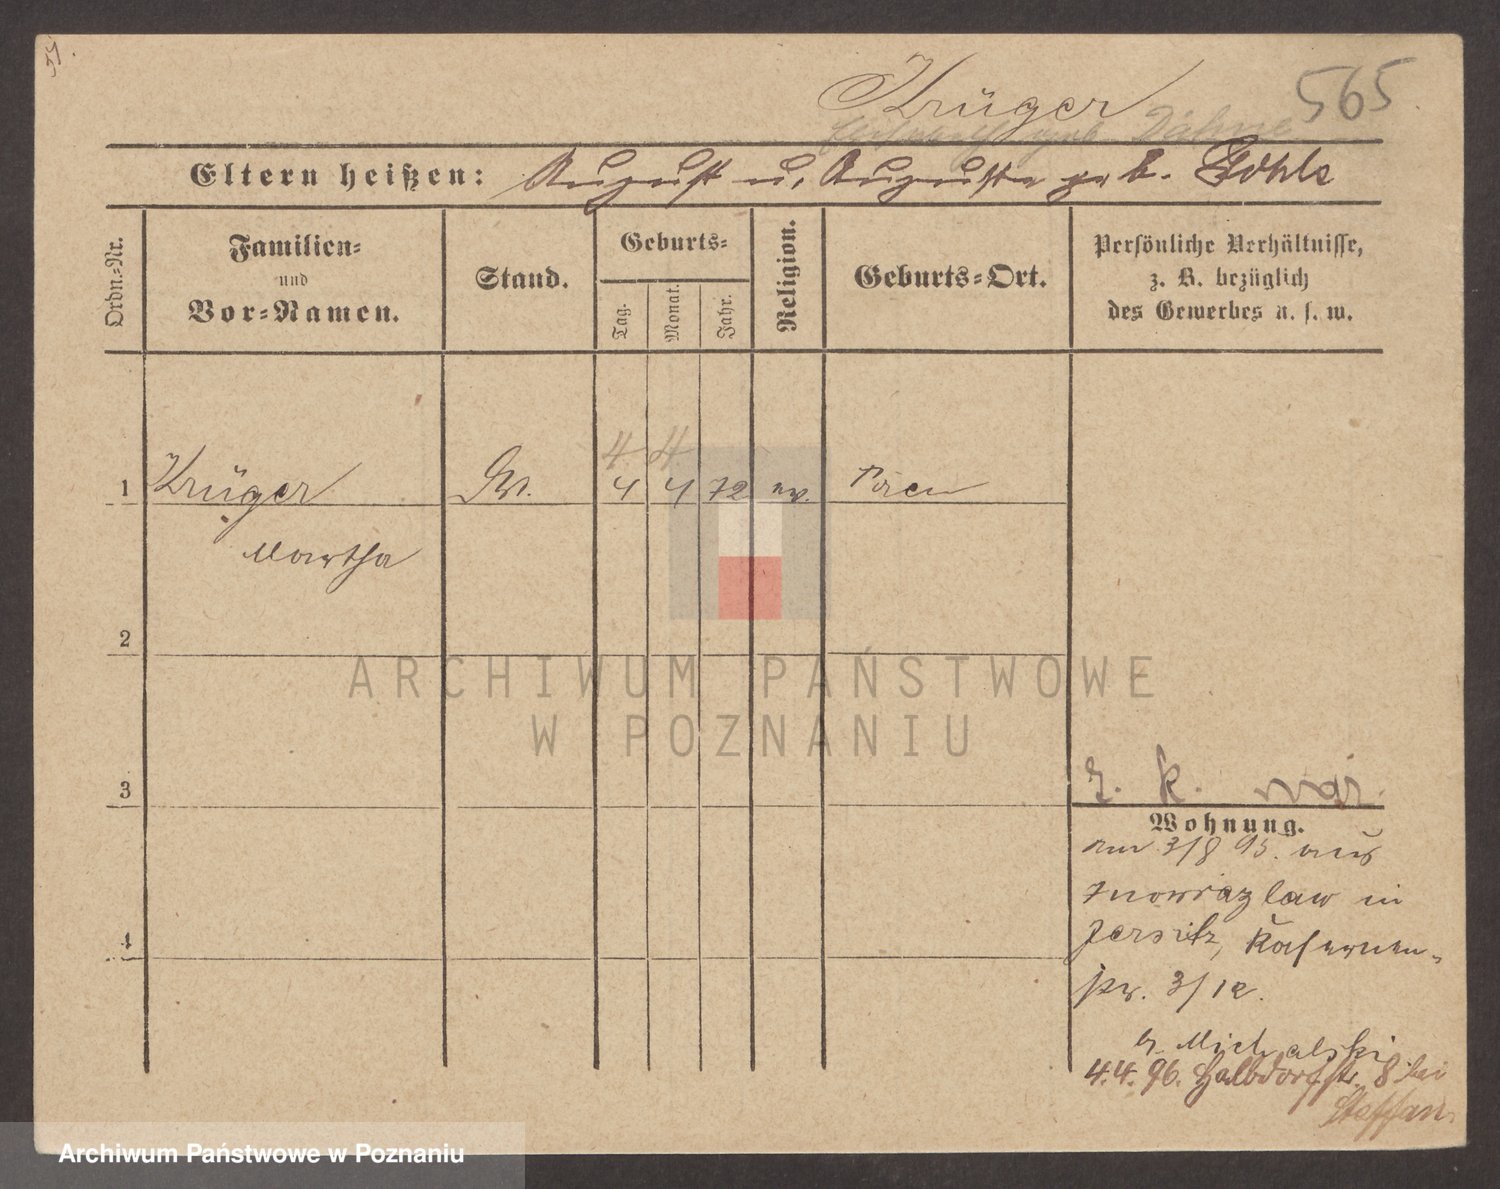 51.
Krüger
565
Dähne
Eltern heißen: August u. Auguste geb. Göhlz
Ordn.-Nr.
Familien-
und
Vor-Namen.
Stand.
Geburts-
Tag.
Monat.
Jahr.
Religion.
Geburts-Ort.
Persönliche Verhältnisse,
z. B. bezüglich
des Gewerbes u. s. w.
4 4
1 Krüger 4 4 72 ev.
Martha
2
3
4
z. k.
Wohnung.
am 3/8 95. aus
Inowrazlaw in
Jersitz, Kasernen-
str. 3/12.
b. Michalski
4.4.96. Halbdorfstr. 8 bei
Steffan
ARCHIWUM PAŃSTWOWE
W POZNANIU
Archiwum Państwowe w Poznaniu